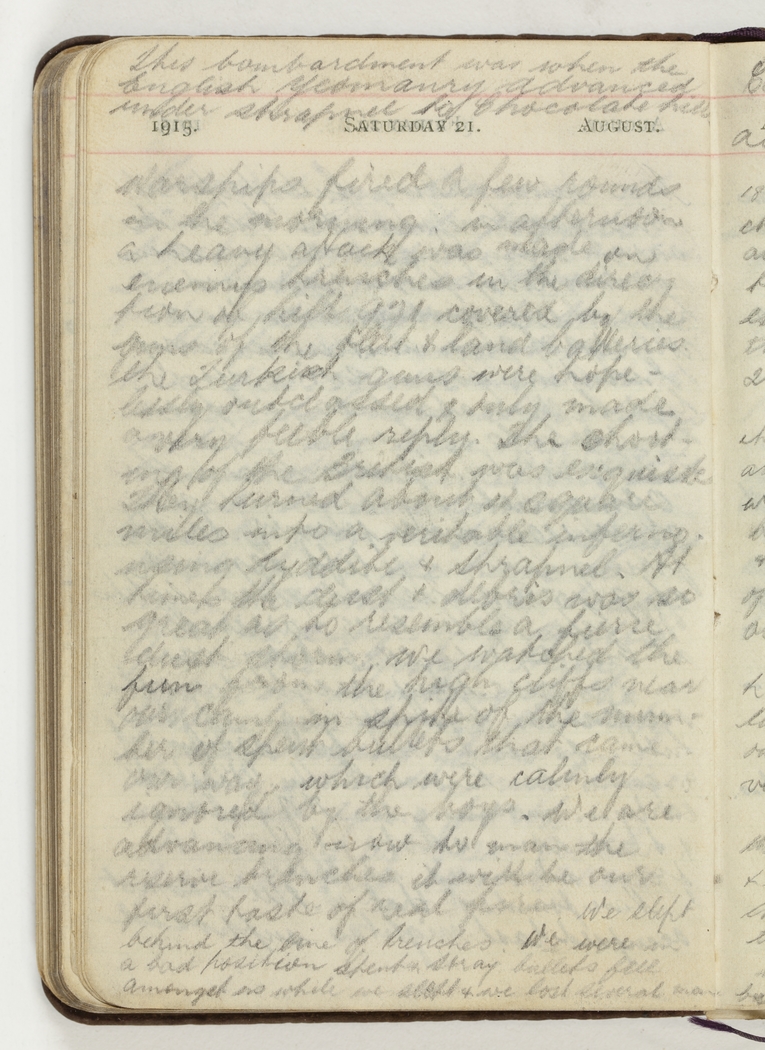 This bombardment was when the
English Yeomanry advanced
under shrapnel to Chocolate hill
1915. SATURDAY 21. AUGUST.
Warships fired a few rounds
in the morning. in afternoon
a heavy attack was made on
enemys trenches in the direc
tion of hill 971 covered by the
guns of the fleet & land batteries.
the Turkish guns were hope-
lessly outclassed & only made
a very feeble reply. The shoot-
ing of the British was exquisite
They turned about 4 square
miles into a veritable inferno.
using Lyddite & shrapnel. At
times the dust & debris was so
great as to resemble a fierce
dust storm. We watched the
fun from the high cliffs near
our camp in spite of the num-
ber of spent bullets that came
our way, which were calmly
ignored by the boys. We are
advancing now to man the
reserve trenches it will be our
first taste of real We slept
behind the line of trenches. We were in
a bad position spent & stray bullets fell
amongst us while we slept & we lost several men